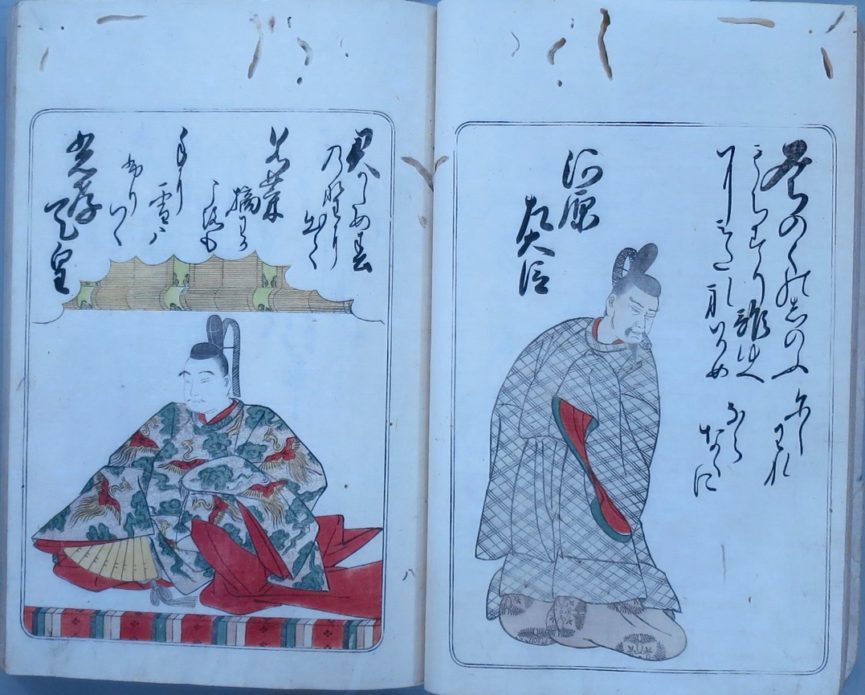 みちのくのしのふ
もちすり誰ゆへ
にみたれそめ
にし
われ
なら
なくに
河原
左大臣
君かため春
の野に出て
若菜
摘わか
ころも
てに
雪ハ
ふりつゝ
光孝
天皇